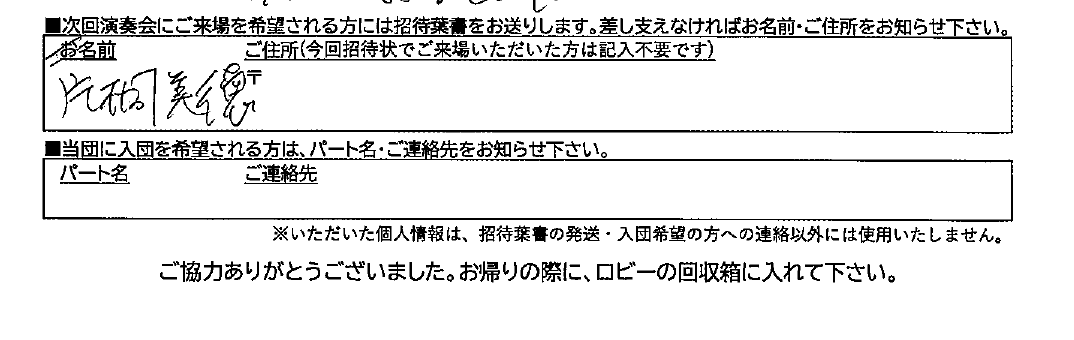 ■次回演奏会にご来場を希望される方には招待葉書をお送りします。差し支えなければお名前・ご住所をお知らせ下さい。
お名前 ご住所(今回招待状でご来場いただいた方は記入不要です)
片桐 美穂 〒
■当団に入団を希望される方は、パート名・ご連絡先をお知らせ下さい。
パート名 ご連絡先
※いただいた個人情報は、招待葉書の発送・入団希望の方への連絡以外には使用いたしません。
ご協力ありがとうございました。お帰りの際に、ロビーの回収箱に入れて下さい。